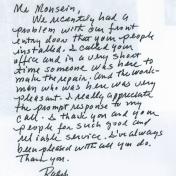 Mr Monsein,
We recently had a
problem with our front
entry door that your people
installed. I called your
office and in a very short
time someone was here to
make the repair. And the work-
man who was here was very
pleasant. I really appreciate
the prompt response to my
call. I thank you and your
people for such good and
reliable service. I've always
been pleased with all you do.
Thank you.